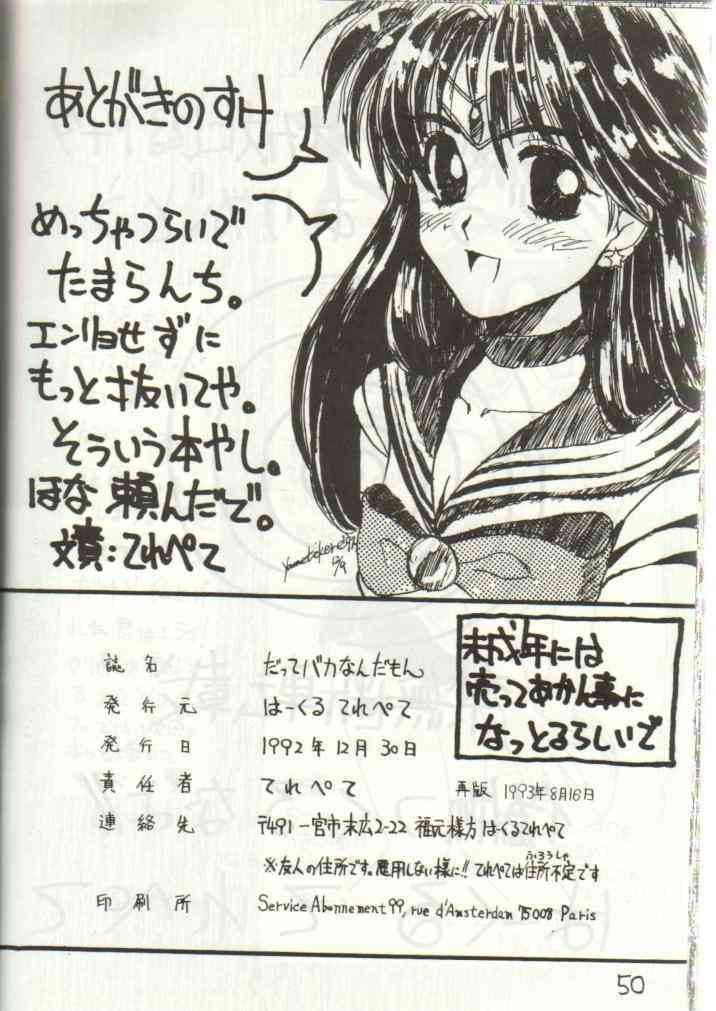 あとがきのすけ
めっちゃつらいで
たまらんち。
エンリョせずに
もっと抜いてや。
そういう本やし。
ほな 頼んだで。
文責：てれぺて
未成年には
売ってあかん事に
なっとるらしいで
誌名 だってバカなんだもん
発行元 はーくる てれぺて
発行日 1992年12月30日
責任者 てれぺて 再版 1993年8月16日
連絡先 〒491 一宮市末広2-22 福元様方 はーくるてれぺて
※友人の住所です。悪用しない様に!! てれぺては住所不定です
ふろうしゃ
印刷所 Service Abonnement 99, rue d'Amsterdam 75008 Paris
50